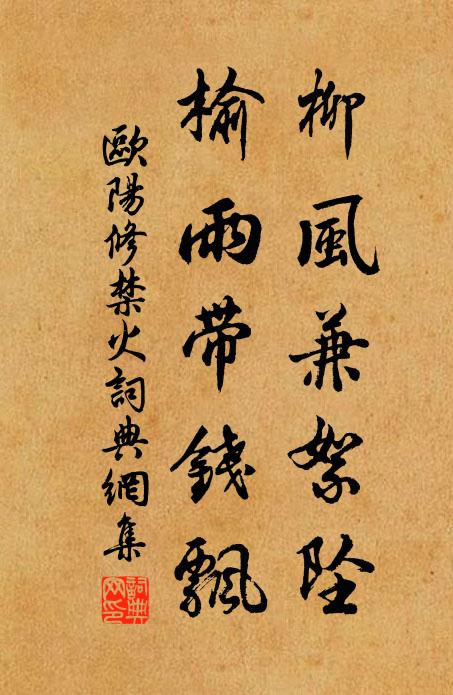 柳風兼絮墜
榆雨帶錢飄
歐陽修禁火詞典網集
詞典
网印